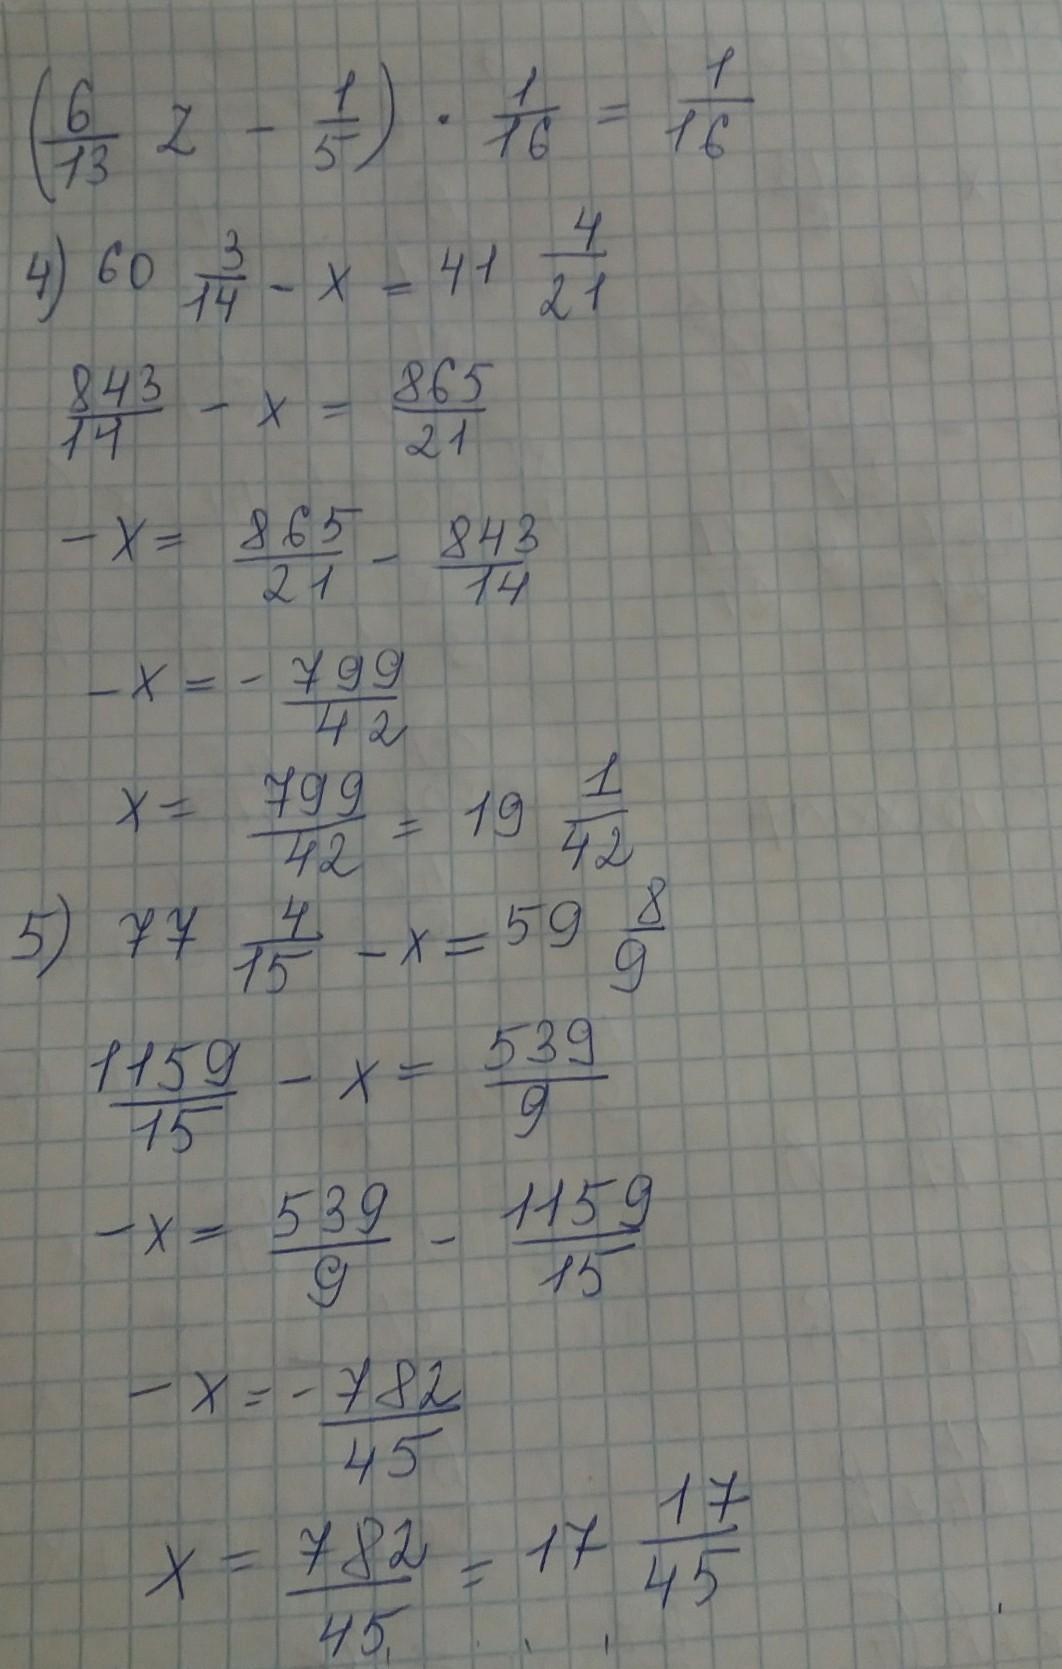 (6/13 z - 1/5) · 1/16 = 1/16
4) 60 3/14 - x = 41 4/21
843/14 - x = 865/21
- x = 865/21 - 843/14
- x = - 799/42
x = 799/42 = 19 1/42
5) 77 4/15 - x = 59 8/9
1159/15 - x = 539/9
- x = 539/9 - 1159/15
- x = - 782/45
x = 782/45 = 17 17/45